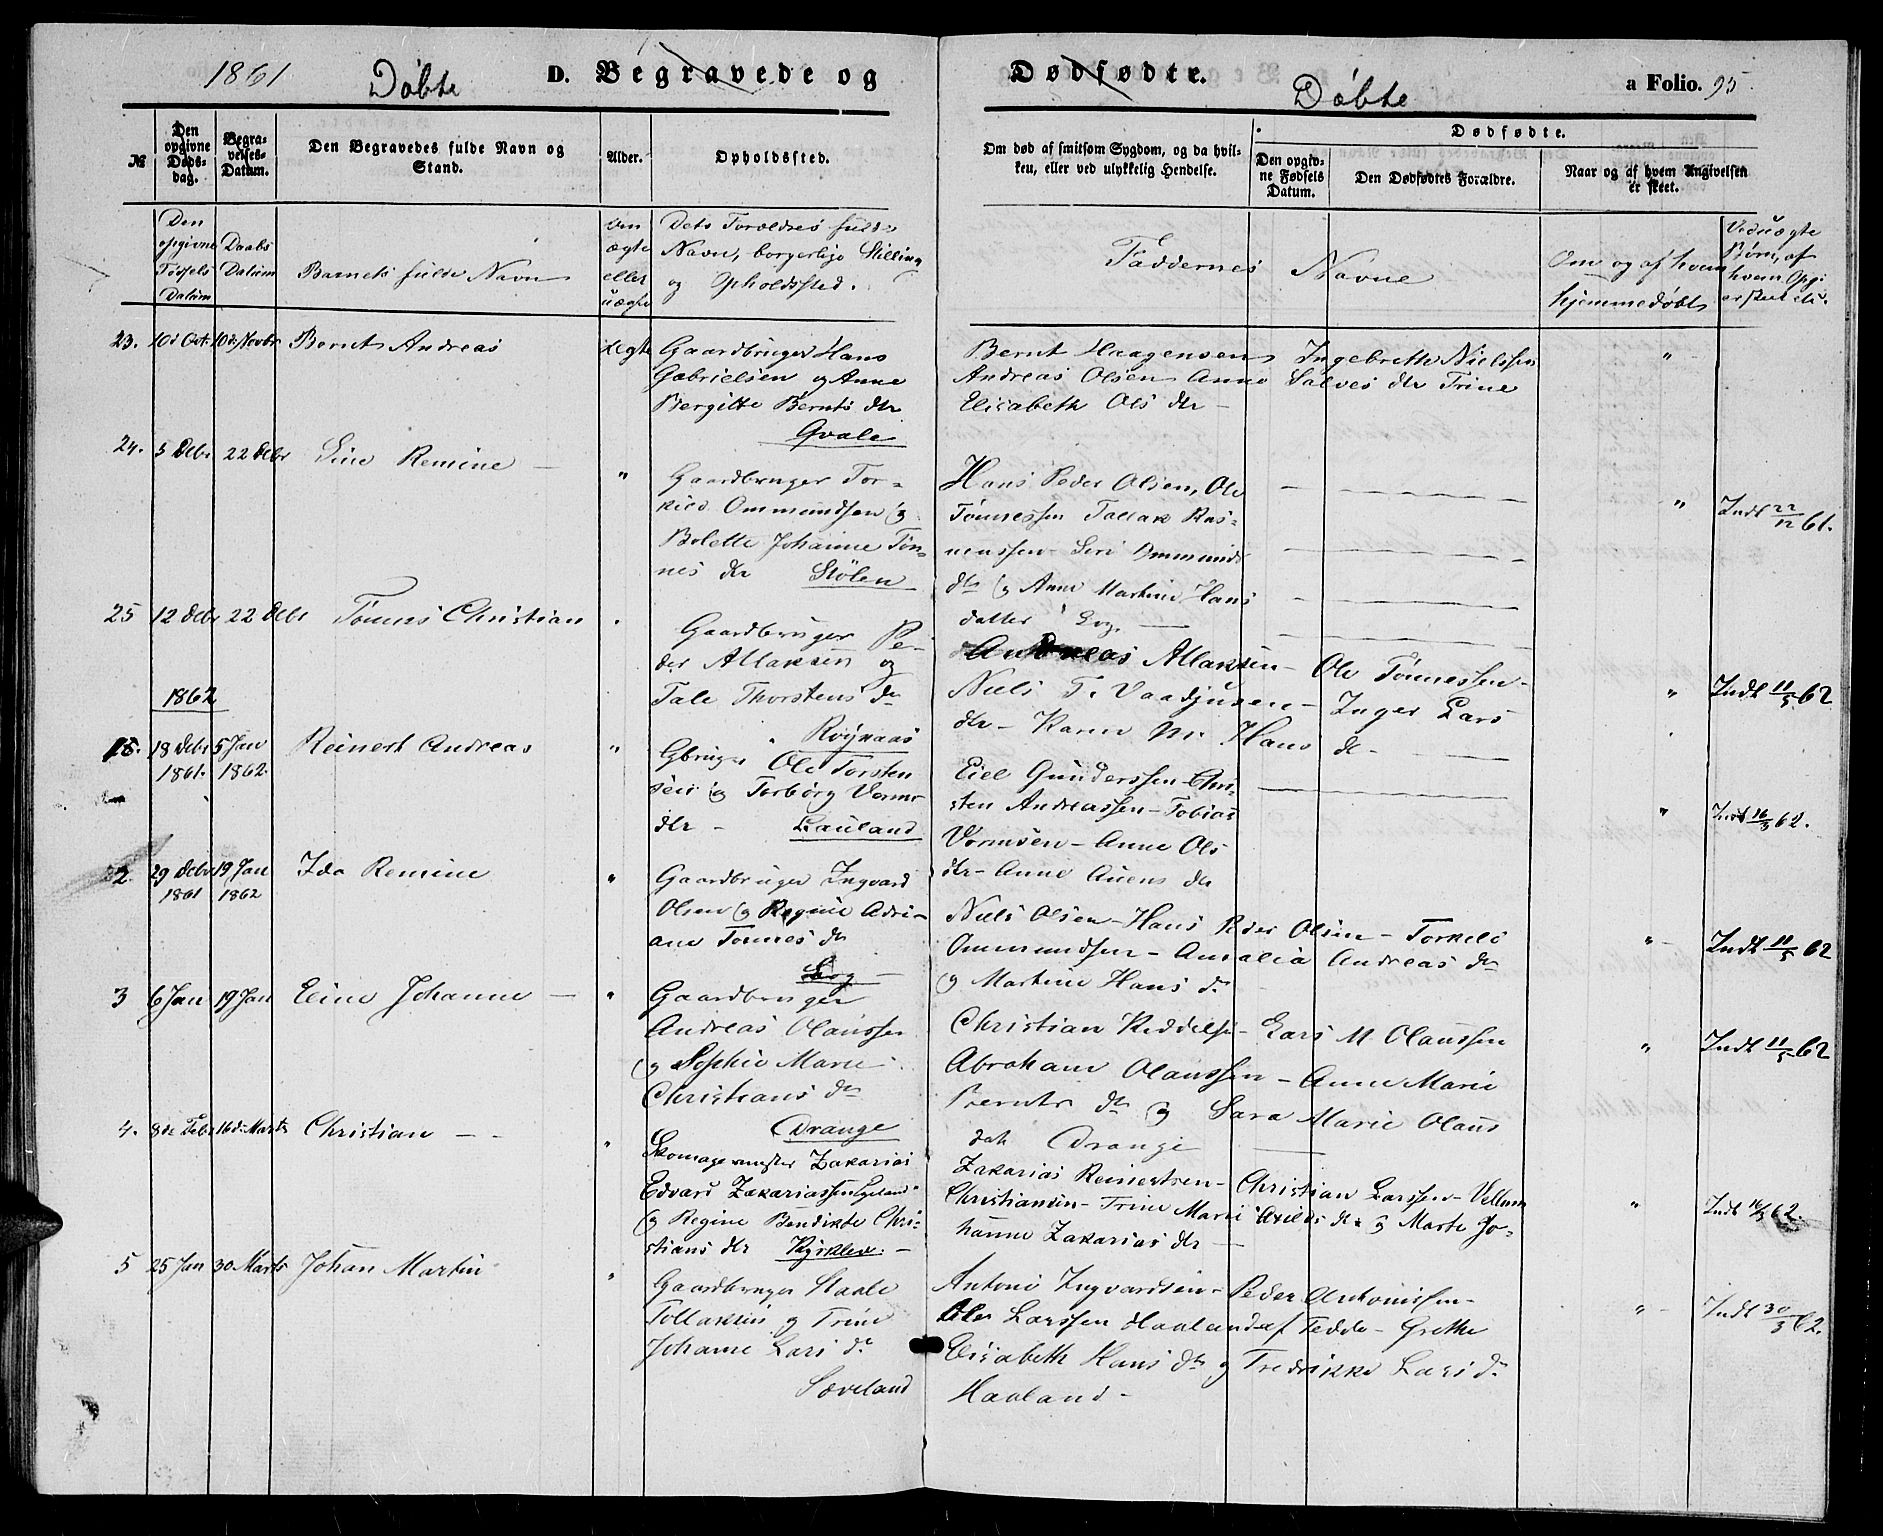 1861
Döbte
D. Begravede og
Dødfødte.
Döbte
a Folio. 95
№
Den opgivne Døds-dag.
Begra-velses-Datum.
Den Begravedes fulde Navn og Stand.
Alder.
Opholdssted.
Om død af smitsom Sygdom, og da hvil-ken, eller ved ulykkelig Hendelse.
Dødfødte.
Den opgiv-ne Fødsels Datum.
Den Dødfødtes Forældre.
Naar og af hvem Angivelsen er skeet.
Den opgivne Födsels Datum
Daabs Datum
Barnets fulde Navn
om ægte eller uægte
Dets Foreldres fulde
Navn, borgerlige Stilling
og Opholdssted.
Faddernes Navne
Om og af hvem
hjemmedöbt
Ved uægte
Börn, af
hvem Opgi
er skeet etc.
23. 10d Oct. 10de Novbr Bernt Andreas ægte
Gaardbruger Hans
Gabrielsen og Anne
Bergitte Bernts dtr
Qvale
Bernt Haagensen Ingebreth Nielssen
Andreas Olsen Anne Salves dtr Trine
Elisabeth Ols dtr –
"
24. 5 Debr 22 Debr Sine Remine – "
Gaardbruger Tor-
kild Ommundsen og
Bolette Johanne Tön-
nes dtr Stölen
Hans Peder Olsen, Ole
Tönnessen Tallak Ras-
mussen Seri Ommunds
dtr og Anne Martine Hans
datter Log. –
" Indt 22/12 61.
25 12 Debr 22 Debr Tönnes Christian "
Gaardbruger Pe-
der Allaksen og
Tale Thorstens dr
Röynaas
Andreas Allaksen – Ole Tönnessen –
Niels T. Vaadjusen – Inger Lars
dtr – Karen M. Hans dr –
" Indt 11/5 62
1862
1. 18 Debr 1861. 5 Jan 1862. Reinert Andreas "
Gbruger Ole Torsten
sen og Torborg Vorms
dtr – Lauland
Eiel Gunderssen – Chri-
sten Andreassen – Tobias
Vormsen – Anne Ols
dtr – Anne Auens dtr
" Indt 16/3 62.
2. 29 Debr 1861 19 Jan 1862 Ida Remine "
Gaardbruger Ingvard
Olsen og Regine Adri-
ane Tönnes dr
Log –
Niels Olsen – Hans Peder Olsen – Torkeld
Ommundsen – Amalia Andreas dr
og Martine Hans dr
" – Indt 11/5 62
3 6 Jan 19 Jan Eline Johanne – "
Gaardbruger
Andreas Olaussen
og Sophie Marie
Christians dtr
Drange
Christian Reddelsen – Lars M Olaussen
Abraham Olaussen – Anne Marie
Bernts dtr og Sara Marie Olaus
datt Drange –
" Indt 11/5 62
4. 8de Febr 16d Marts Christian – – "
Skomagermester Zakarias
Edvard Zakariassen Egeland
og Regine Bendikte Chri-
stians dtr Kirklev. –
Zakarias Reinertsen – Christian Larssen – Vellum
Christiansen – Trine Marie Axilds dr og Marte Jo-
hanne Zakarias dtr –
" Indt 16/3 62.
5 25 Jan 30 Marts Johan Martin "
Gaardbruger Staale
Tollaksen og Trine
Johanne Lars dr
Sæveland
Antoni Ingvardsen – Peder Antonissen –
Ole Larssen Haaland af Fedde – Grethe
Elisabeth Hans dtr og Fredrikke Lars dr
Haaland –
" Indt 30/3 62.